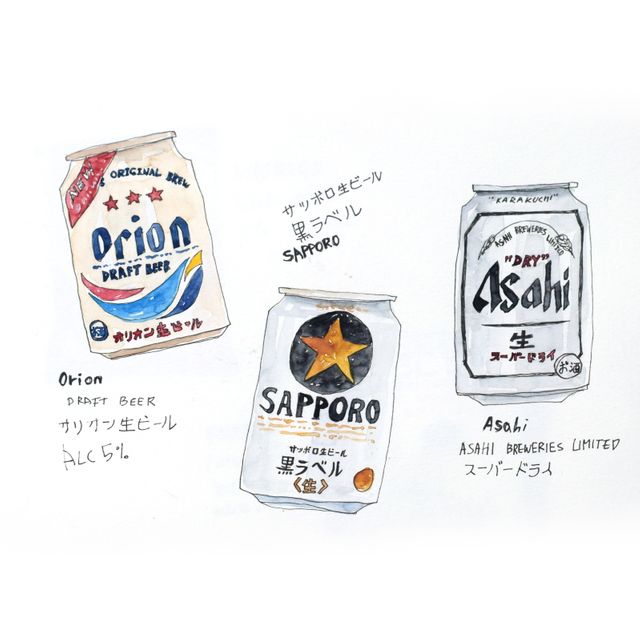 NEW!
S ORIGINAL BREW
Orion
DRAFT BEER
オリオン生ビール
Orion
DRAFT BEER
サリオン生ビール
ALC 5%
サッポロ生ビール
黒ラベル
SAPPORO
SAPPORO
サッポロ生ビール
黒ラベル
〈生〉
"KARAKUCHI"
ASAHI BREWERIES LIMITED
"DRY"
Asahi
生
スーパードライ
お酒
Asahi
ASAHI BREWERIES LIMITED
スーパードライ